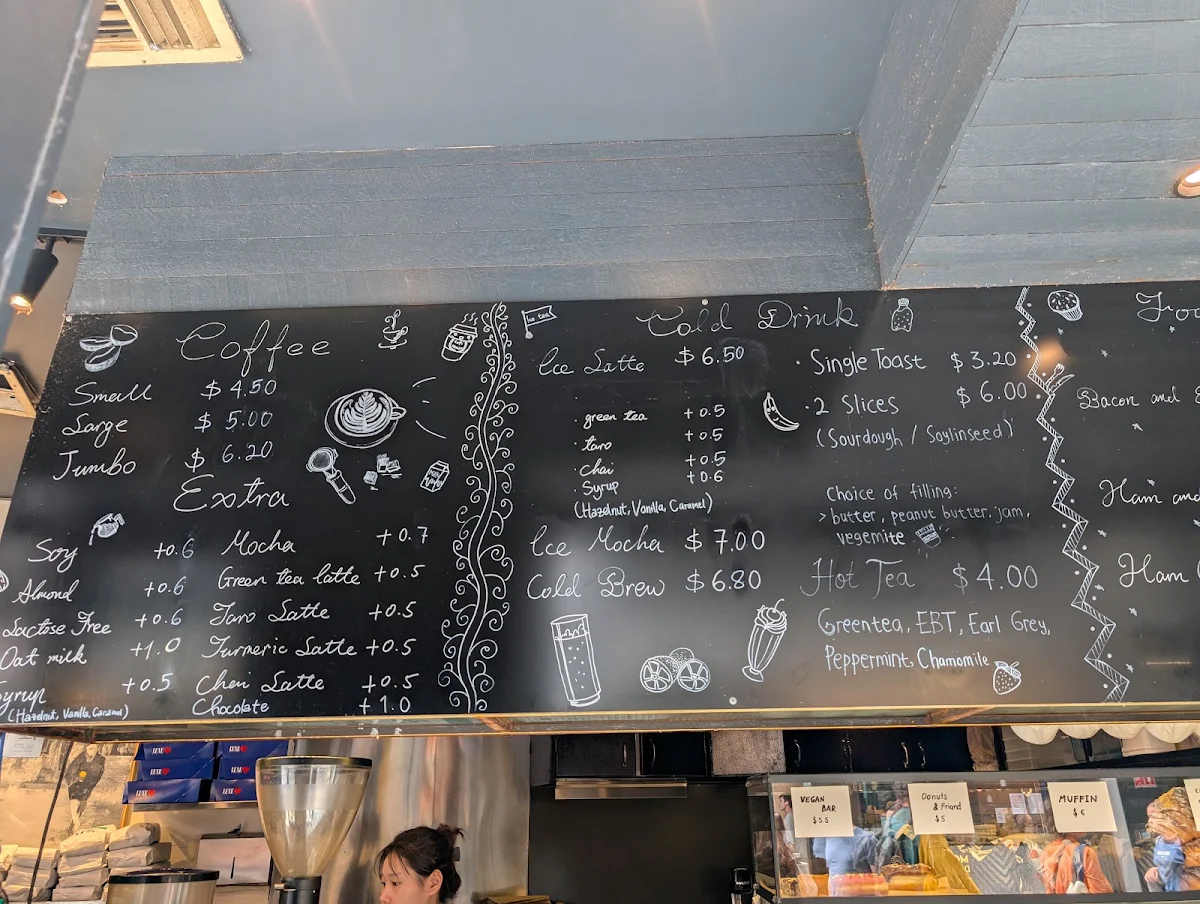 Coffee
Small $4.50
Large $5.00
Jumbo $6.20
Extra
Soy +0.6
Almond +0.6
Lactose Free +0.6
Oat milk +1.0
Syrup +0.5
(Hazelnut, Vanilla, Caramel)
Mocha +0.7
Green tea latte +0.5
Taro Latte +0.5
Turmeric Latte +0.5
Chen Latte +0.5
Chocolate +1.0
Cold Drink
Ice Latte $6.50
· green tea +0.5
· taro +0.5
· chai +0.5
· Syrup +0.6
(Hazelnut, Vanilla, Caramel)
Ice Mocha $7.00
Cold Brew $6.80
· Single Toast $3.20
· 2 Slices $6.00
(Sourdough / Soylinseed)
Choice of filling:
> butter, peanut butter, jam,
vegemite
Hot Tea $4.00
Greentea, EBT, Earl Grey,
Peppermint, Chamomile
Bacon and
Ham and
Ham
VEGAN
BAR
$5.5
Donuts
& Friend
$5
MUFFIN
$6